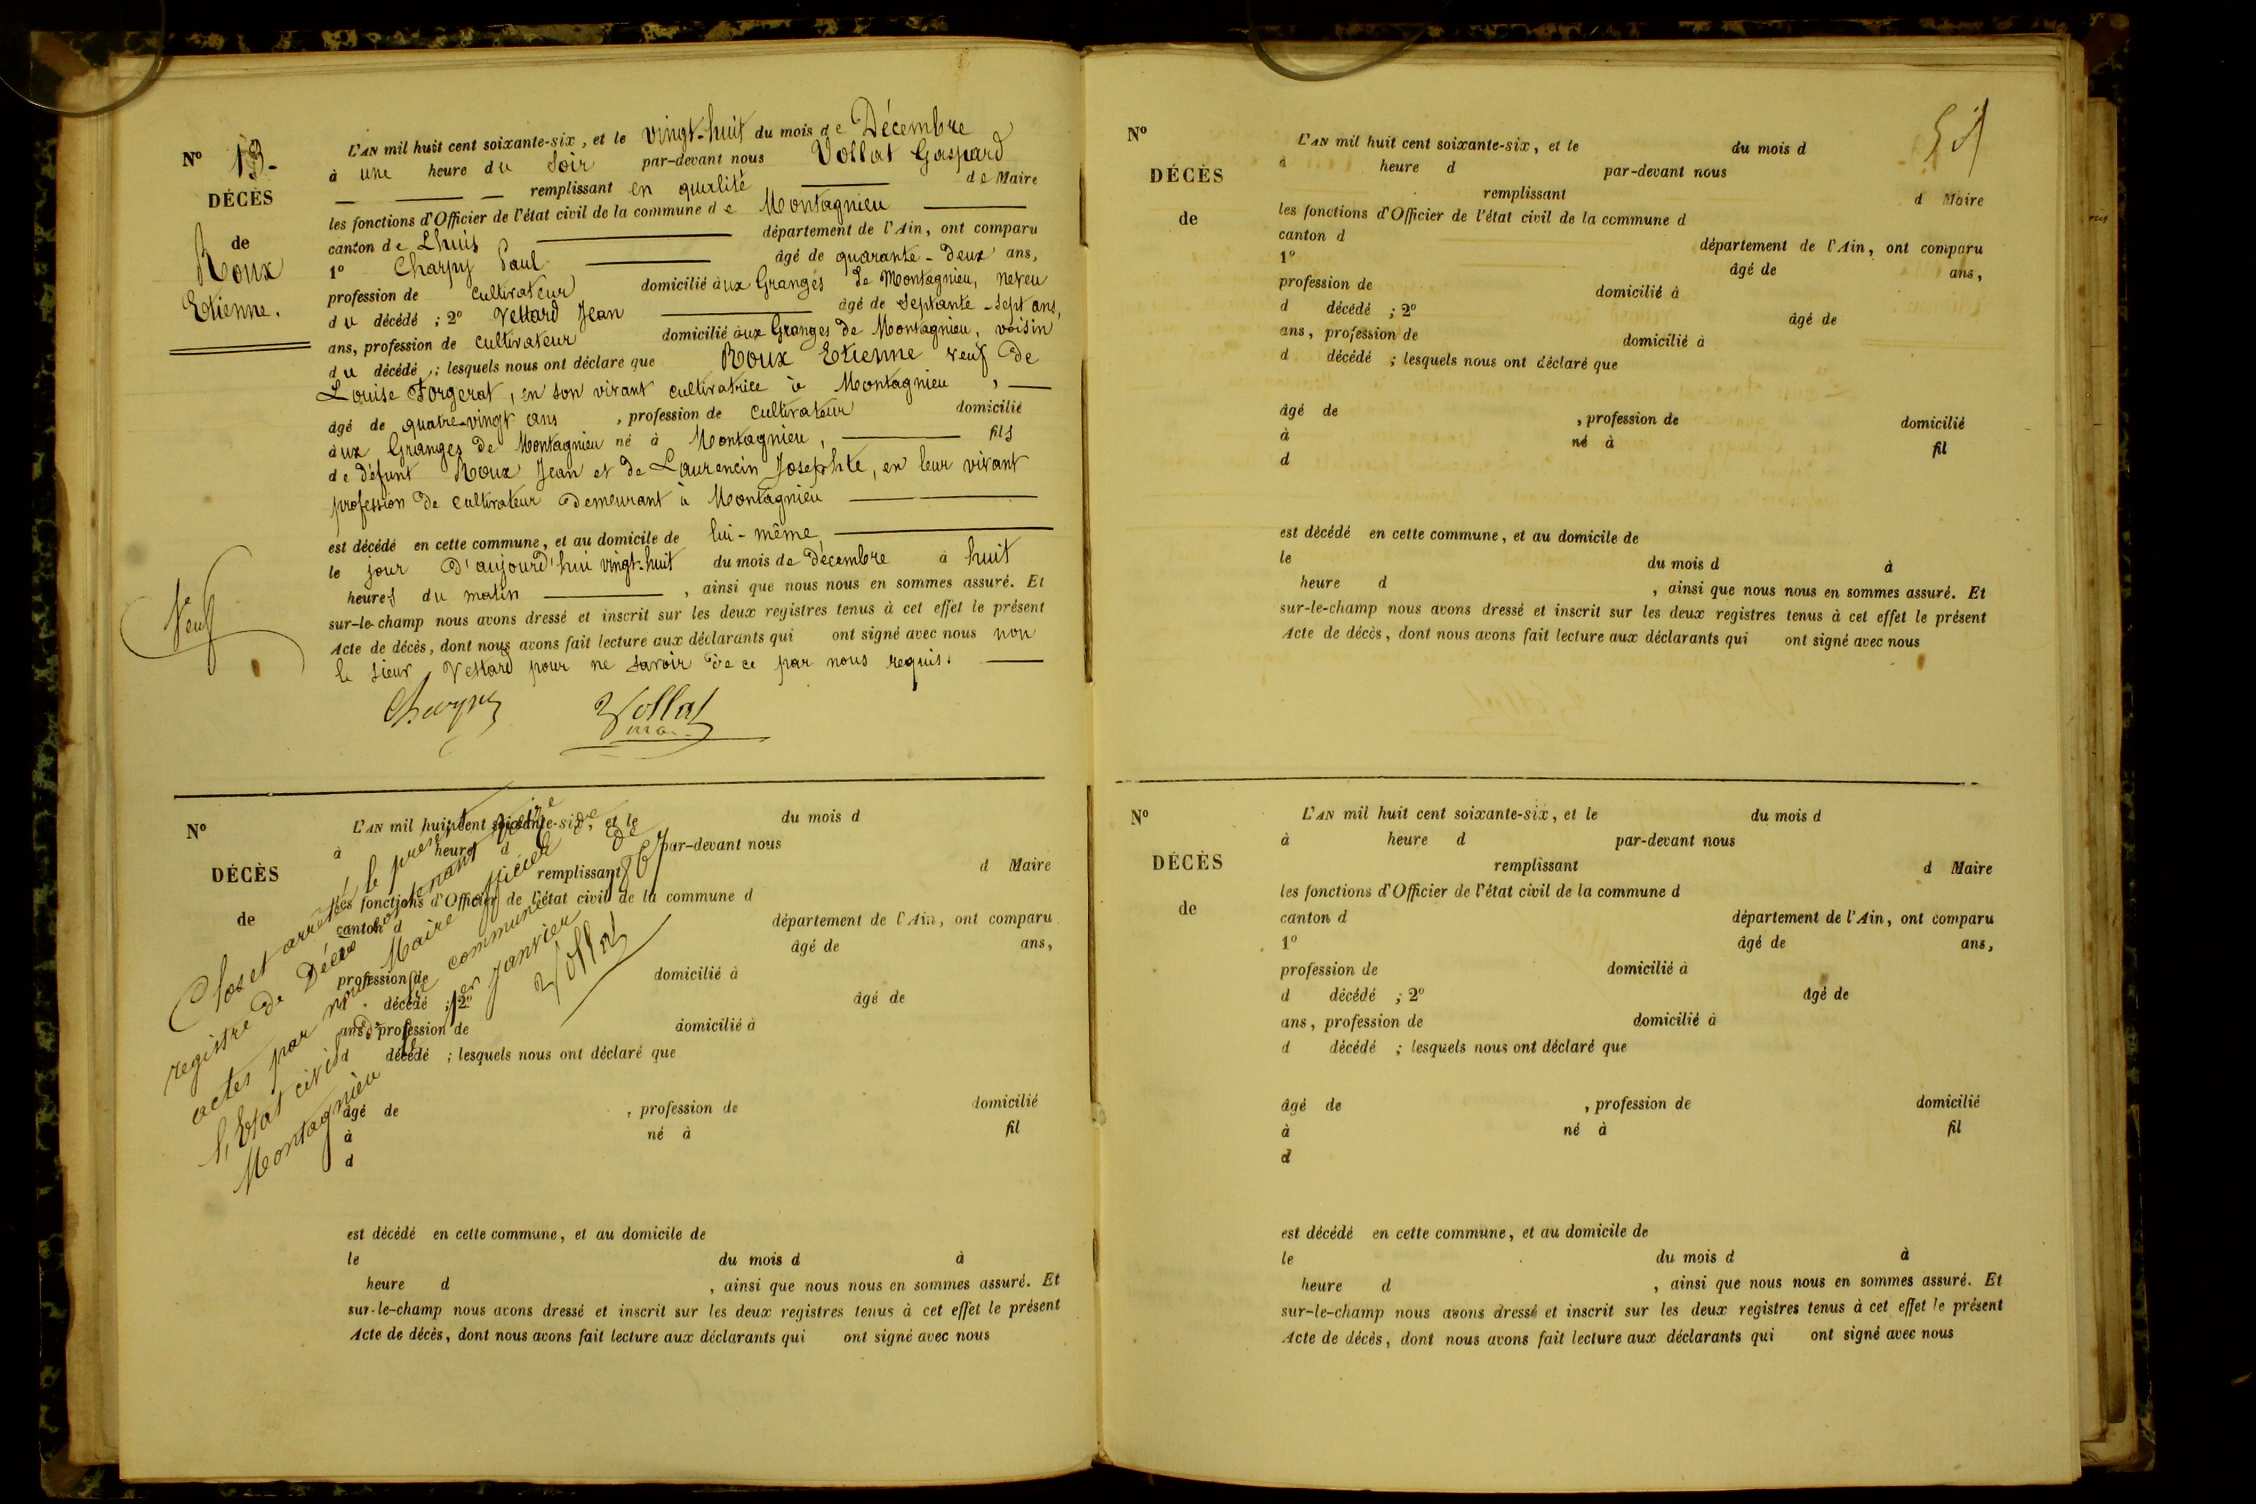 Nº 13-
DÉCÈS
de
Roux
Etienne.
Veuf
L'AN mil huit cent soixante-six, et le vingt-huit du mois de Décembre
à une heure du soir par-devant nous Vollat Gaspard
remplissant en qualité de Maire
les fonctions d'Officier de l'état civil de la commune de Montagnieu
canton de Lhuis département de l'Ain, ont comparu
1º Charpy Paul âgé de quarante-deux ans,
profession de cultivateur domicilié aux Granges de Montagnieu, neveu
du décédé ; 2º Vettard Jean âgé de septante-sept ans,
ans, profession de cultivateur domicilié aux Granges de Montagnieu, voisin
du décédé ; lesquels nous ont déclaré que Roux Etienne veuf de
Louise Forgerat, en son vivant cultivatrice à Montagnieu,
âgé de quatre-vingt ans, profession de cultivateur domicilié
aux Granges de Montagnieu né à Montagnieu, fils
de défunt Roux Jean et de Laurencin Josephte, en leur vivant
profession de cultivateur demeurant à Montagnieu
est décédé en cette commune, et au domicile de lui-même,
le jour d'aujourd'hui vingt-huit du mois de décembre à huit
heures du matin, ainsi que nous nous en sommes assuré. Et
sur-le-champ nous avons dressé et inscrit sur les deux registres tenus à cet effet le présent
Acte de décès, dont nous avons fait lecture aux déclarants qui ont signé avec nous non
le sieur Vettard pour ne savoir de ce par nous requis.
Charpy Vollat
Nº
DÉCÈS
de
L'AN mil huit cent soixante-six, et le du mois d
à heure d par-devant nous
remplissant d Maire
les fonctions d'Officier de l'état civil de la commune d
canton d département de l'Ain, ont comparu
âgé de ans,
profession de domicilié à
décédé ; 2º âgé de
ans, profession de domicilié à
d décédé ; lesquels nous ont déclaré que
âgé de , profession de domicilié
à né à fil
d
est décédé en cette commune, et au domicile de
le du mois d à
heure d , ainsi que nous nous en sommes assuré. Et
sur-le-champ nous avons dressé et inscrit sur les deux registres tenus à cet effet le présent
Acte de décès, dont nous avons fait lecture aux déclarants qui ont signé avec nous
Clos et arrêté le présent
registre de Décès contenant treize
actes par nous Maire officier de
l'Etat civil de la commune de
Montagnieu le 1er Janvier 1867
Vollat
Nº
DÉCÈS
de
L'AN mil huit cent soixante-six, et le du mois d
à heure d par-devant nous
remplissant d Maire
les fonctions d'Officier de l'état civil de la commune d
canton d département de l'Ain, ont comparu
1º âgé de ans,
profession de domicilié à
d décédé ; 2º âgé de
ans, profession de domicilié à
d décédé ; lesquels nous ont déclaré que
âgé de , profession de domicilié
à né à fil
d
est décédé en cette commune, et au domicile de
le du mois d à
heure d , ainsi que nous nous en sommes assuré. Et
sur-le-champ nous avons dressé et inscrit sur les deux registres tenus à cet effet le présent
Acte de décès, dont nous avons fait lecture aux déclarants qui ont signé avec nous
Nº
DÉCÈS
de
L'AN mil huit cent soixante-six, et le du mois d
à heure d par-devant nous
remplissant d Maire
les fonctions d'Officier de l'état civil de la commune d
canton d département de l'Ain, ont comparu
1º âgé de ans,
profession de domicilié à
d décédé ; 2º âgé de
ans, profession de domicilié à
d décédé ; lesquels nous ont déclaré que
âgé de , profession de domicilié
à né à fil
d
est décédé en cette commune, et au domicile de
le du mois d à
heure d , ainsi que nous nous en sommes assuré. Et
sur-le-champ nous avons dressé et inscrit sur les deux registres tenus à cet effet le présent
Acte de décès, dont nous avons fait lecture aux déclarants qui ont signé avec nous